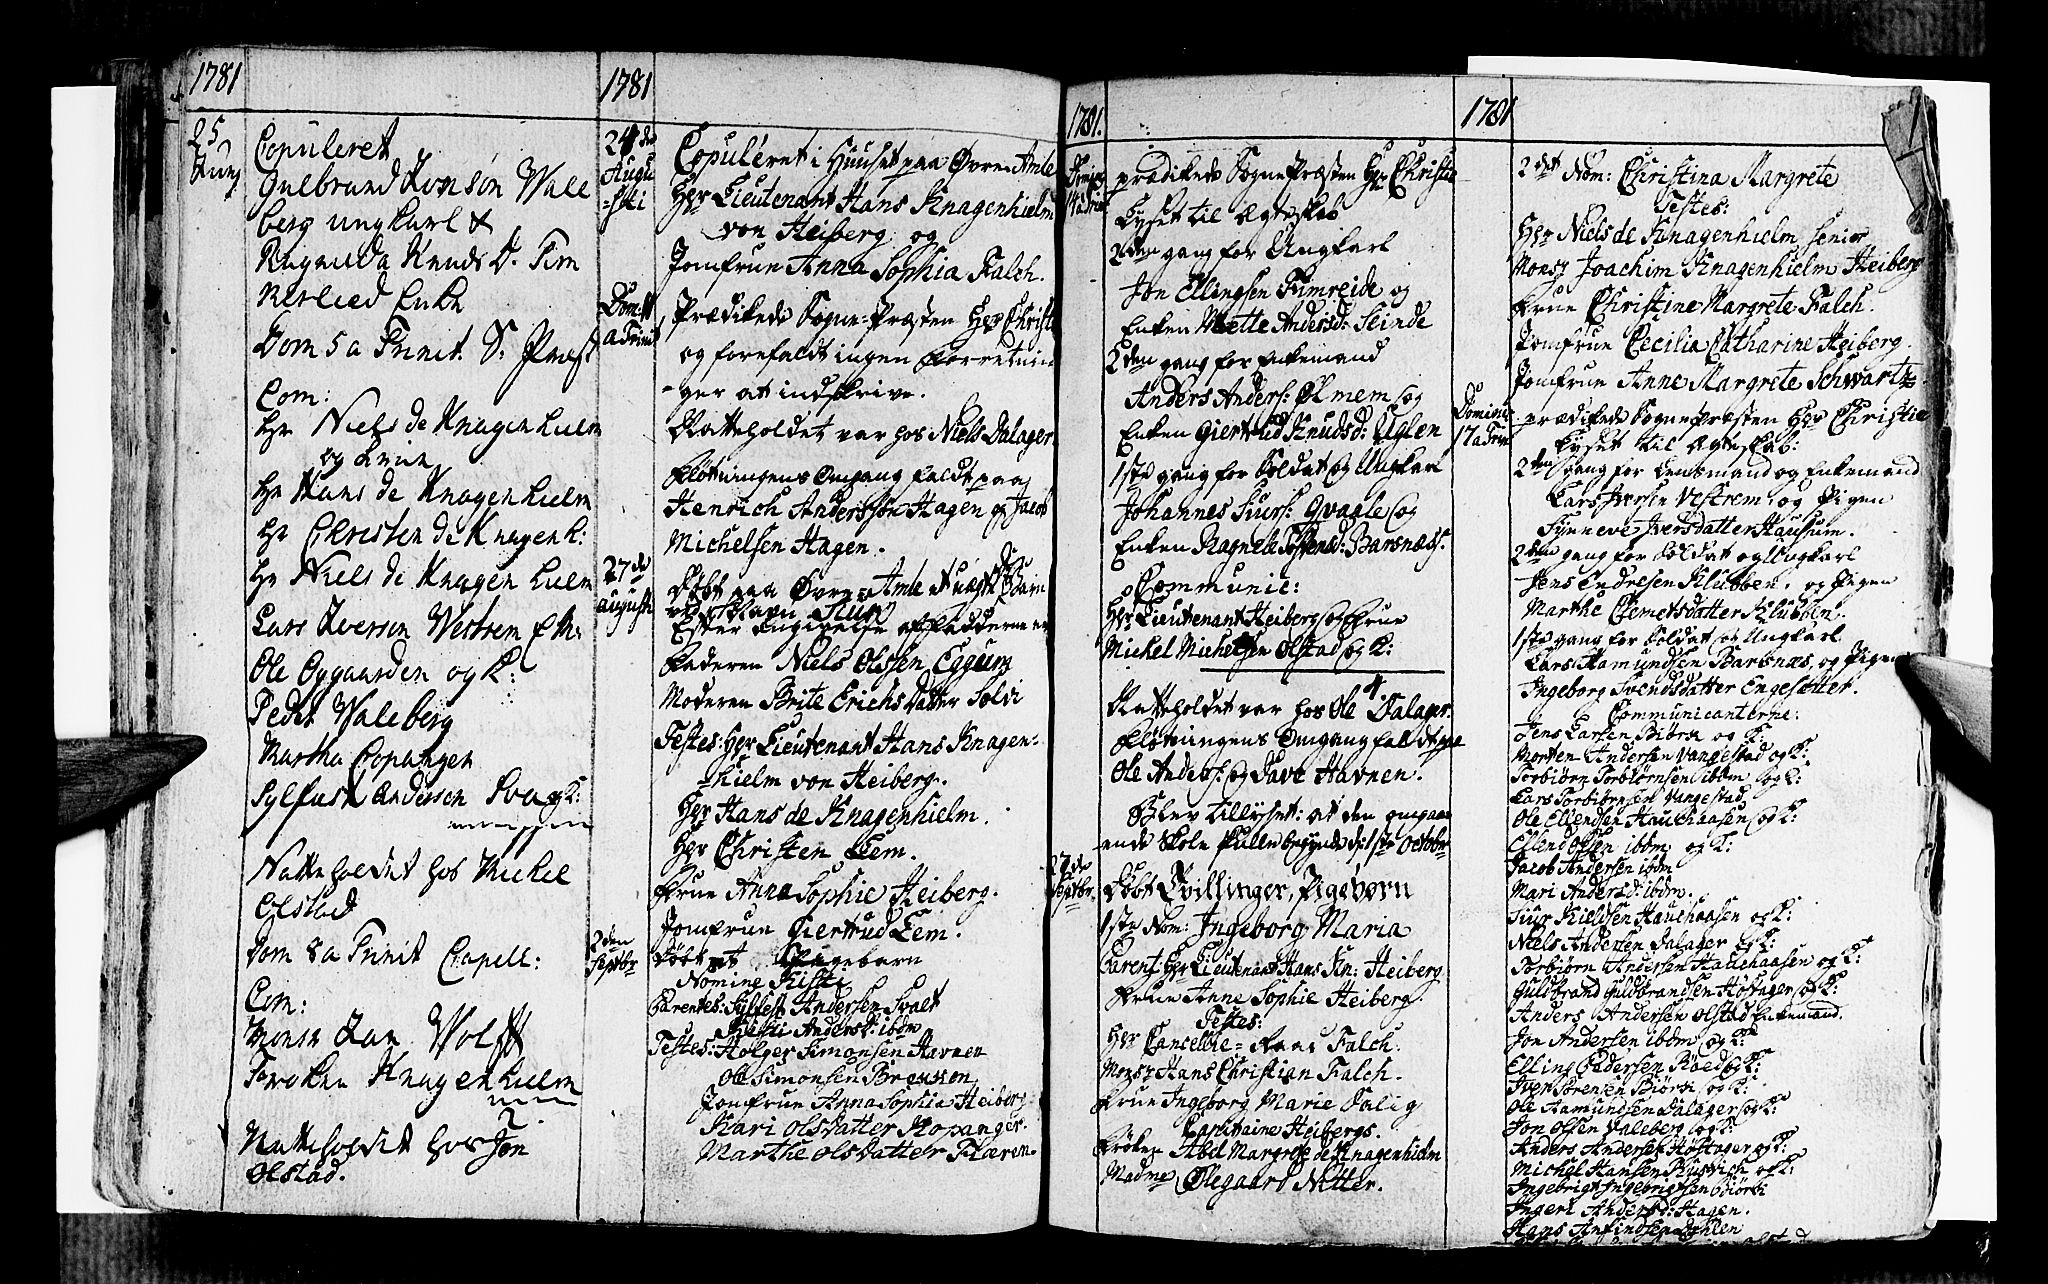 1781
25
Juny
Copuleret
Gulbrand Jonsøn Wale
berg ungkarl &
Ragnilda Knuds D. Tim
Enke
Dom 5 a Trinit. S: Præst
Com:
Hr Niels de Knagenhielm
og Frue
Hr Hans de Knagenhielm
Hr Christen de Knagenh:
Hr Niels de Knagenhielm
Lars Iverson Westrem
Ole Oygaarden og K:
Peder Waleberg
Martha Copangen
Sylfest Anderson K:
Natteholdet hos Mickel
Olstad
Dom 8 a Trinit Capell:
Com:
Monsr Jan Wolff
Frøken Knagenhielm
Natteholdet hos Jon
Olstad.
1781
24de
Augu
-sti
Copuleret i Huuset paa Øvre Amle
Hr Lieutenant Hans Knagenhielm
von Heiberg og
Jomfrue Anna Sophia Falch.
Dom: 11
a Trinit
Prædikede Sogne-Præsten Hr Christie
og forefaldt ingen Forretnin
-ger at indskrive.
Natteholdet var hos Niels Dalager
Fløtningens Omgang faldt paa
Henrich Anderssøn Hagen og Jacob
Michelsen Hagen.
27de
augusti
Døbt paa Øvre Amle et uægte Barn
ved Navn
Efter Angivelse af Fadderne er
Faderen Niels Olssen Eggum
Moderen Brite Erichsdatter Solvi
Testes: Hr Lieutenant Hans Knagen-
hielm von Heiberg.
Hr Hans de Knagenhielm.
Hr Christen Leem.
Frue Anna Sophie Heiberg.
Jomfrue Giertrud Leem.
2den
Septbr
Døbt et Pigebarn
Nomine Kisti
Parentes: Sylfest Andersen Svalt
Kisti Andersd: ibdm
Testes: Holger Simonsen Havnen
Ole Simonsen
Jomfrue Anna Sophia Heiberg
Kari Olsdatter Kopanger.
Marthe Olsdatter
1781.
Doming
14 a Trin
prædikede SognePræsten Hr Christie
Lyset til Ægteskab
2den gang for Ungkarl
Jon Ellingsen Fimreide og
Enken Mette Andersd: Seinde
2den gang for Enkemand
Anders Anders: Ølmem og
Enken Giertrud Knudsd: Uglen
1ste gang for Soldat og Ungkarl
Johannes Siurs: Qvaale og
Enken Ragnele Barsnæss:
Communic:
Hr Lieutenant Heiberg og Frue
Michel Michelsen Olstad og K:
Natteholdet var hos Ole Dalager:
Fløtningens Omgang faldt paa
Ole Anders: og Save Havnen.
Blev tillyset: at den omgaa-
ende Skole skulle begynde d: 1ste Octobr
27de
Septbr.
Døbt Tvillinger, Pigebørn
1ste Nom: Ingeborg Maria
Parent. Hr Lieutenant Hans Kn: Heiberg
Frue Anne Sophie Heiberg.
Testes:
Hr Cancellie-Raad Falch.
Monsr Hans Christian Falch.
Frue Ingeborg Marie Dalig
Capitaine Heibergs.
Frøken Abel Margrete de Knagenhielm
Madme Ølegaard Nitter.
1781
2det Nom: Christina Margrete
Testes:
Hr Niels de Knagenhielm senior
Monsr Joachim Knagenhielm Heiberg
Frue Christine Margrete Falch.
Jomfrue Cecilia Catharine Heiberg.
Jomfrue Anne Margrete Schwartz
Domini
17 a Trin
prædikede Sognepræsten Hr Christie
Lyset til Ægteskab:
2den gang for Lensmand og Enkemand
Lars Iversen Vestrem: og Pigen
Synneve Iversdatter Hausum.
2den gang for Soldat og Ungkarl
Jens Endresen Klubben. og Pigen
Marthe Clemetsdatter Klubben.
1ste gang for Soldat og Ungkarl
Lars Aamundsen Barsnæs, og Pigen
Ingeborg Svendsdatter Engesætter.
Communicanterne:
Jens Larsen Biørk og K:
Morten Andersen Vangestad og K:
Torbiørn Torbiørnsen ibdm og K:
Lars Torbiørnsen Vangestad
Ole Ellendsen Hauchaasen og K:
Ellend Olsen ibdm og K:
Jacob Andersen ibdm
Mari Andersd: ibdm.
Siur Kieldsen Hauchaasen og K:
Niels Andersen Dalager og K:
Torbiørn Andersen Hauchaasen og K:
Guldbrand Guldbrandsen Hofager og K:
Anders Andersen Olstad Enkemand.
Jon Andersen ibdm og K:
Elling Pedersen Røed og K:
Iver Sørensen Biørk og K:
Ole Aamundsen Dalager og K:
Jon Olsen Valeberg og K:
Anders Andersen Hoftager og K:
Michel Hansen og K:
Ingebrigt Ingebrigtsen Biørk
Ingeri Andersd: Hagen.
Hans Anfindsen Dahlen